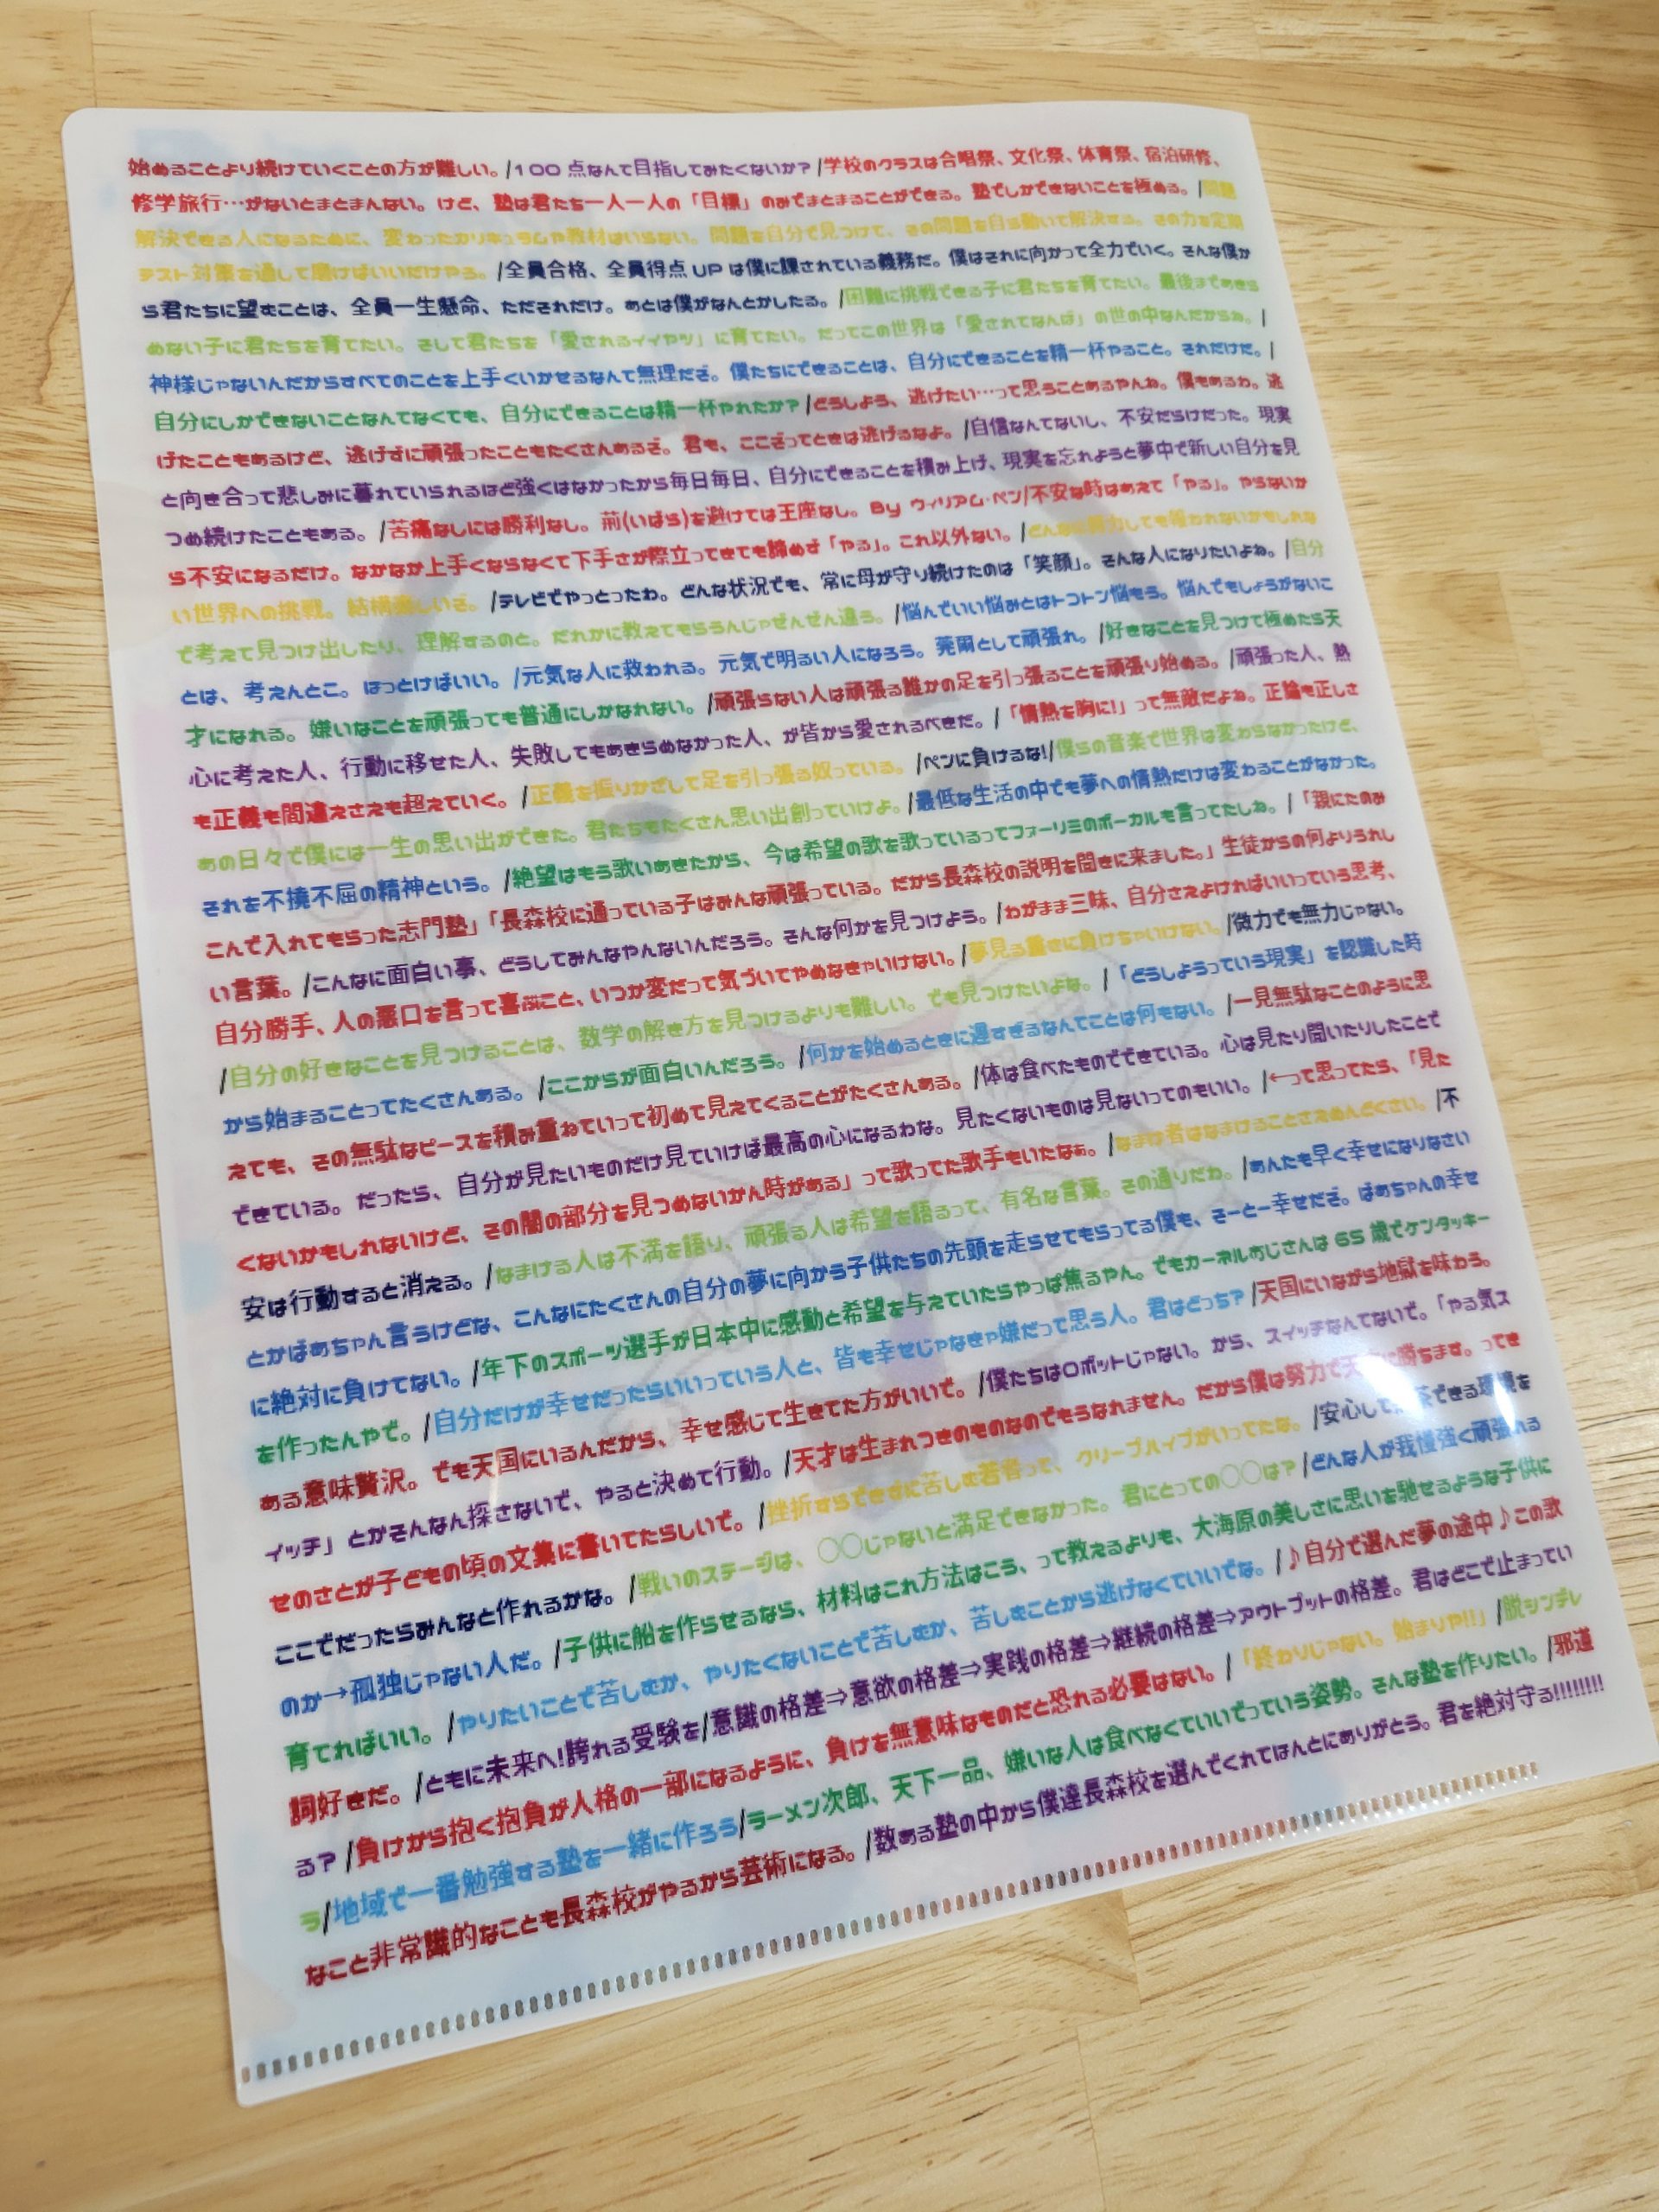 始めることより続けていくことの方が難しい。/100点なんて目指してみたくないか?/学校のクラスは合唱祭、文化祭、体育祭、宿泊研修、
修学旅行…がないとまとまんない。けど、塾は君たち一人一人の「目標」のみでまとまることができる。塾でしかできないことを極める。/問題
解決できる人になるために、変わったカリキュラムや教材はいらない。問題を自分で見つけて、その問題を自ら動いて解決する。その力を定期
テスト対策を通して磨けばいいだけやろ。/全員合格、全員得点UPは僕に課されている義務だ。僕はそれに向かって全力でいく。そんな僕か
ら君たちに望むことは、全員一生懸命、ただそれだけ。あとは僕がなんとかしたる。/困難に挑戦できる子に君たちを育てたい。最後まであきら
めない子に君たちを育てたい。そして君たちを「愛されるイイヤツ」に育てたい。だってこの世界は「愛されてなんぼ」の世の中なんだからね。/
神様じゃないんだからすべてのことを上手くいかせるなんて無理だぞ。僕たちにできることは、自分にできることを精一杯やること。それだけだ。/
自分にしかできないことなんてなくても、自分にできることは精一杯やれたか?/どうしよう、逃げたい…って思うことあるやんね。僕もあるわ。逃
げたこともあるけど、逃げずに頑張ったこともたくさんあるぞ。君も、ここぞってときは逃げるなよ。/自信なんてないし、不安だらけだった。現実
と向き合って悲しみに暮れていられるほど強くはなかったから毎日毎日、自分にできることを積み上げ、現実を忘れようと夢中で新しい自分を見
つめ続けたこともある。/苦痛なしには勝利なし。荊(いばら)を避けては王座なし。By ウィリアム・ペン/不安な時はあえて「やる」。やらないか
ら不安になるだけ。なかなか上手くならなくて下手さが際立ってきても諦めず「やる」。これ以外ない。/どんなに努力しても報われないかもしれな
い世界への挑戦。結構楽しいぞ。/テレビでやっとったわ。どんな状況でも、常に母が守り続けたのは「笑顔」。そんな人になりたいよね。/自分
で考えて見つけ出したり、理解するのと。だれかに教えてもらうんじゃぜんぜん違う。/悩んでいい悩みとはトコトン悩もう。悩んでもしょうがないこ
とは、考えんとこ。ほっとけばいい。/元気な人に救われる。元気で明るい人になろう。莞爾として頑張れ。/好きなことを見つけて極めたら天
才になれる。嫌いなことを頑張っても普通にしかなれない。/頑張らない人は頑張る誰かの足を引っ張ることを頑張り始める。/頑張った人、熱
心に考えた人、行動に移せた人、失敗してもあきらめなかった人、が皆から愛されるべきだ。/「情熱を胸に!」って無敵だよね。正論も正しさ
も正義も間違えさえも超えていく。/正義を振りかざして足を引っ張る奴っている。/ペンに負けるな!/僕らの音楽で世界は変わらなかったけど、
あの日々で僕には一生の思い出ができた。君たちもたくさん思い出創っていけよ。/最低な生活の中でも夢への情熱だけは変わることがなかった。
それを不撓不屈の精神という。/絶望はもう歌いあきたから、今は希望の歌を歌っているってフォーリミのボーカルも言ってたしね。/「親にたのみ
こんで入れてもらった志門塾」「長森校に通っている子はみんな頑張っている。だから長森校の説明を聞きに来ました。」生徒からの何よりうれし
い言葉。/こんなに面白い事、どうしてみんなやんないんだろう。そんな何かを見つけよう。/わがまま三昧、自分さえよければいいっていう思考、
自分勝手、人の悪口を言って喜ぶこと、いつか変だって気づいてやめなきゃいけない。/夢見る重さに負けちゃいけない。/微力でも無力じゃない。
/自分の好きなことを見つけることは、数学の解き方を見つけるよりも難しい。でも見つけたいよな。/「どうしようっていう現実」を認識した時
から始まることってたくさんある。/ここからが面白いんだろう。/何かを始めるときに遅すぎるなんてことは何もない。/一見無駄なことのように思
えても、その無駄なピースを積み重ねていって初めて見えてくることがたくさんある。/体は食べたものでできている。心は見たり聞いたりしたことで
できている。だったら、自分が見たいものだけ見ていけば最高の心になるわな。見たくないものは見ないってのもいい。/←って思ってたら、「見た
くないかもしれないけど、その闇の部分を見つめないかん時がある」って歌ってた歌手もいたなぁ。/なまけ者はなまけることさえめんどくさい。/不
安は行動すると消える。/なまける人は不満を語り、頑張る人は希望を語るって、有名な言葉。その通りだわ。/あんたも早く幸せになりなさい
とかばあちゃん言うけどな、こんなにたくさんの自分の夢に向かう子供たちの先頭を走らせてもらってる僕も、そーとー幸せだぞ。ばあちゃんの幸せ
に絶対に負けてない。/年下のスポーツ選手が日本中に感動と希望を与えていたらやっぱ焦るやん。でもカーネルおじさんは65歳でケンタッキー
を作ったんやで。/自分だけが幸せだったらいいっていう人と、皆も幸せじゃなきゃ嫌だって思う人。君はどっち?/天国にいながら地獄を味わう。
ある意味贅沢。でも天国にいるんだから、幸せ感じて生きてた方がいいで。/僕たちはロボットじゃない。から、スイッチなんてないで。「やる気ス
イッチ」とかそんなん探さないで、やると決めて行動。/天才は生まれつきのものなのでもうなれません。だから僕は努力で天に勝ちます。ってき
せのさとが子どもの頃の文集に書いてたらしいで。/挫折すらできずに苦しむ若者って、クリープハイプがいってたな。/安心してできる環境を
ここでだったらみんなと作れるかな。/戦いのステージは、〇〇じゃないと満足できなかった。君にとっての〇〇は?/どんな人が我慢強く頑張れる
のか→孤独じゃない人だ。/子供に船を作らせるなら、材料はこれ方法はこう、って教えるよりも、大海原の美しさに思いを馳せるような子供に
育てればいい。/やりたいことで苦しむか、やりたくないことで苦しむか、苦しむことから逃げなくていいでな。/♪自分で選んだ夢の途中♪この歌
詞好きだ。/ともに未来へ!誇れる受験を/意識の格差⇒意欲の格差⇒実践の格差⇒継続の格差⇒アウトプットの格差。君はどこで止まってい
る?/負けから抱く抱負が人格の一部になるように、負けを無意味なものだと恐れる必要はない。/「終わりじゃない。始まりや!!」/脱シンデレ
ラ/地域で一番勉強する塾を一緒に作ろう/ラーメン次郎、天下一品、嫌いな人は食べなくていいでっていう姿勢。そんな塾を作りたい。/邪道
なこと非常識的なことも長森校がやるから芸術になる。/数ある塾の中から僕達長森校を選んでくれてほんとにありがとう。君を絶対守る!!!!!!!!